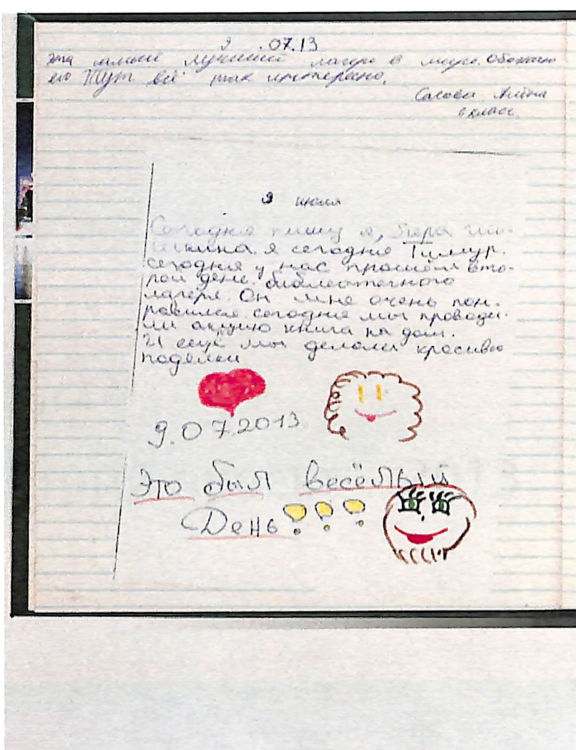 9 .07.13
эта самый лучший лагерь в мире. Обожаю
его Тут всё так интересно.
Алёна
6 класс.
9 июля
Сегодня пишу я, Вера
я сегодня Тимур.
сегодня у нас прошёл вто-
рой день библиотечного
лагеря. Он мне очень пон-
равился сегодня мы проводи-
ли акцию книга на дом.
И ещё мы делали красивые
поделки
9.07.2013
Это был весёлый
День!!!